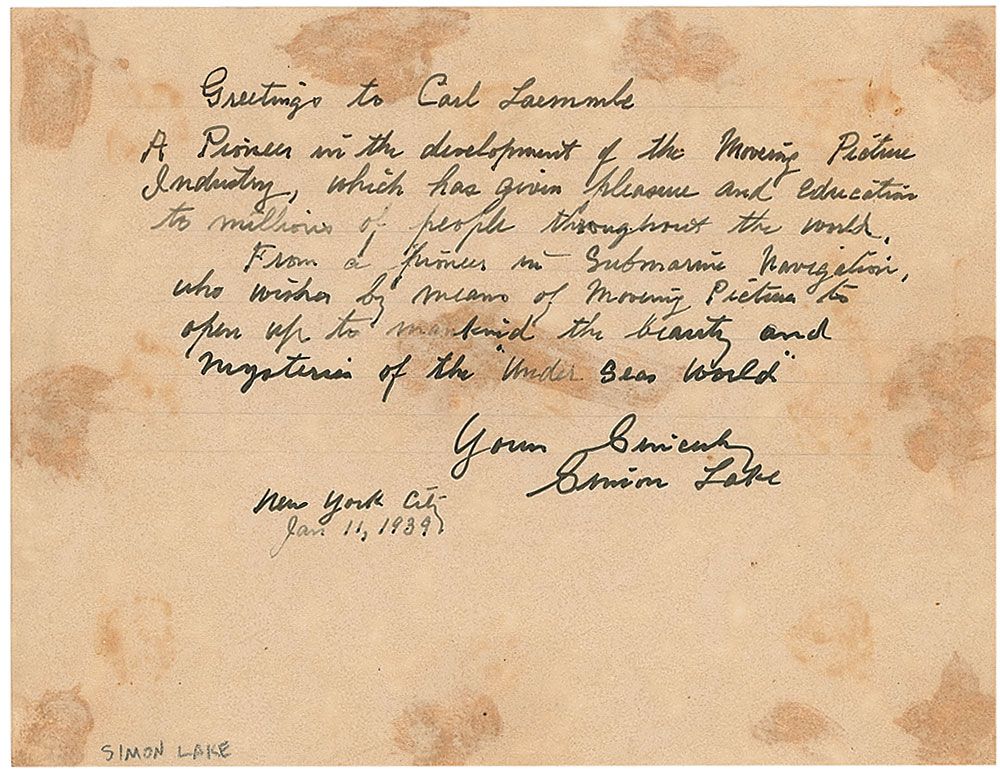 Greetings to Carl Laemmle
A Pioneer in the development of the Moving Picture
Industry, which has given pleasure and education
to millions of people throughout the world.
From a pioneer in Submarine Navigation,
who wishes by means of Moving Pictures to
open up to mankind the beauty and
mysteries of the "Under Seas World"
Yours Sincerely
Simon Lake
New York City
Jan 11, 1939
SIMON LAKE